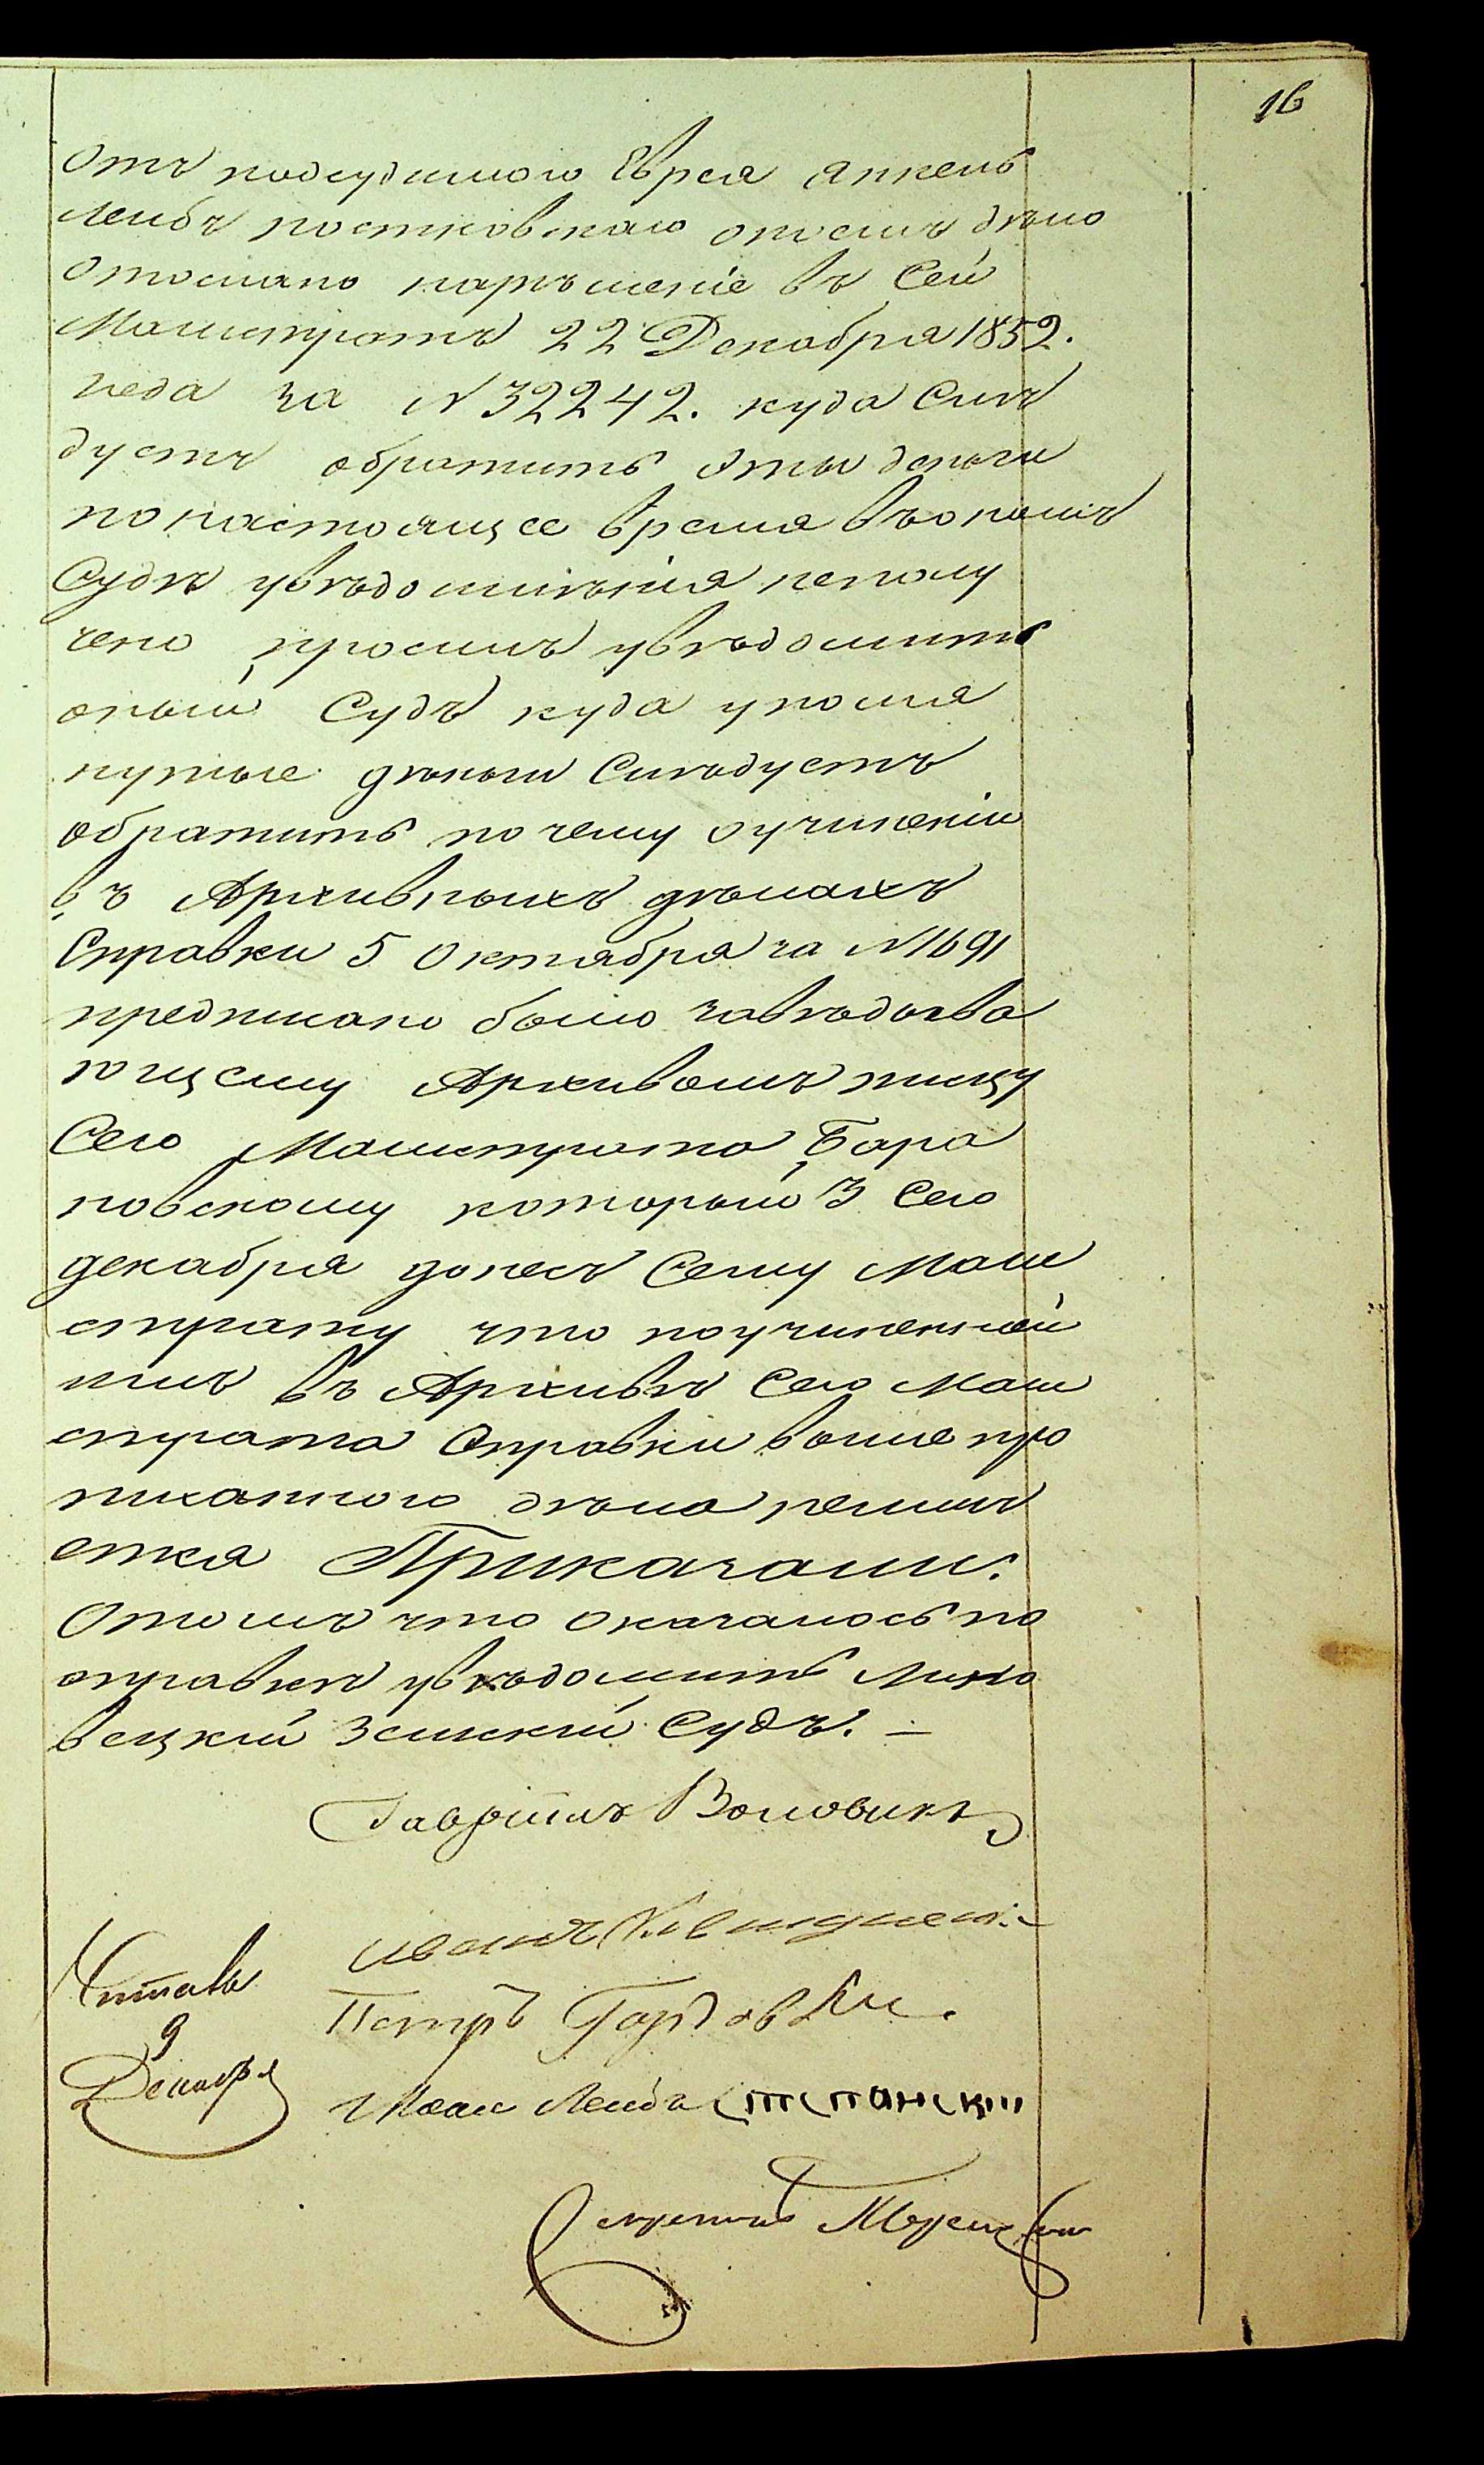 16
Отъ подсудимого Еврея Янкель
Лейбъ постковскаго опосемъ дѣло
отослано нарѣшеніе въ Сей
Магистратъ 22 Декабря 1852.
года за N 32242. куда Слѣ
дуетъ обратить эты деньги
понастоящее время въономъ
Судѣ увѣдомлѣнія неполу
чено, просилъ увѣдомить
оный Судъ куда упомя
нутые дѣньги Слѣдуетъ
обратить по чему оучиненіи
въ Архивныхъ дѣлахъ
Справки 5 Октября за N 1691
предписано было завѣдыва
ющему Архивомъ писцу
Сего Магистрата Бара
новскому который 3 Сего
декабря донесъ Сему Маги
страту что поучиненной
имъ въ Архивѣ Сего Маги
страта Справки выше про
писанного дѣла неимѣ
ется Приказали:
Отомъ что оказалось по
справкѣ увѣдомить Липо
вецкій Земскій Судъ. —
Гавріилъ Воловикъ
Иванъ
Петръ
Лейбъ Степанскій
Читалъ
9
Декабря
Секретарь